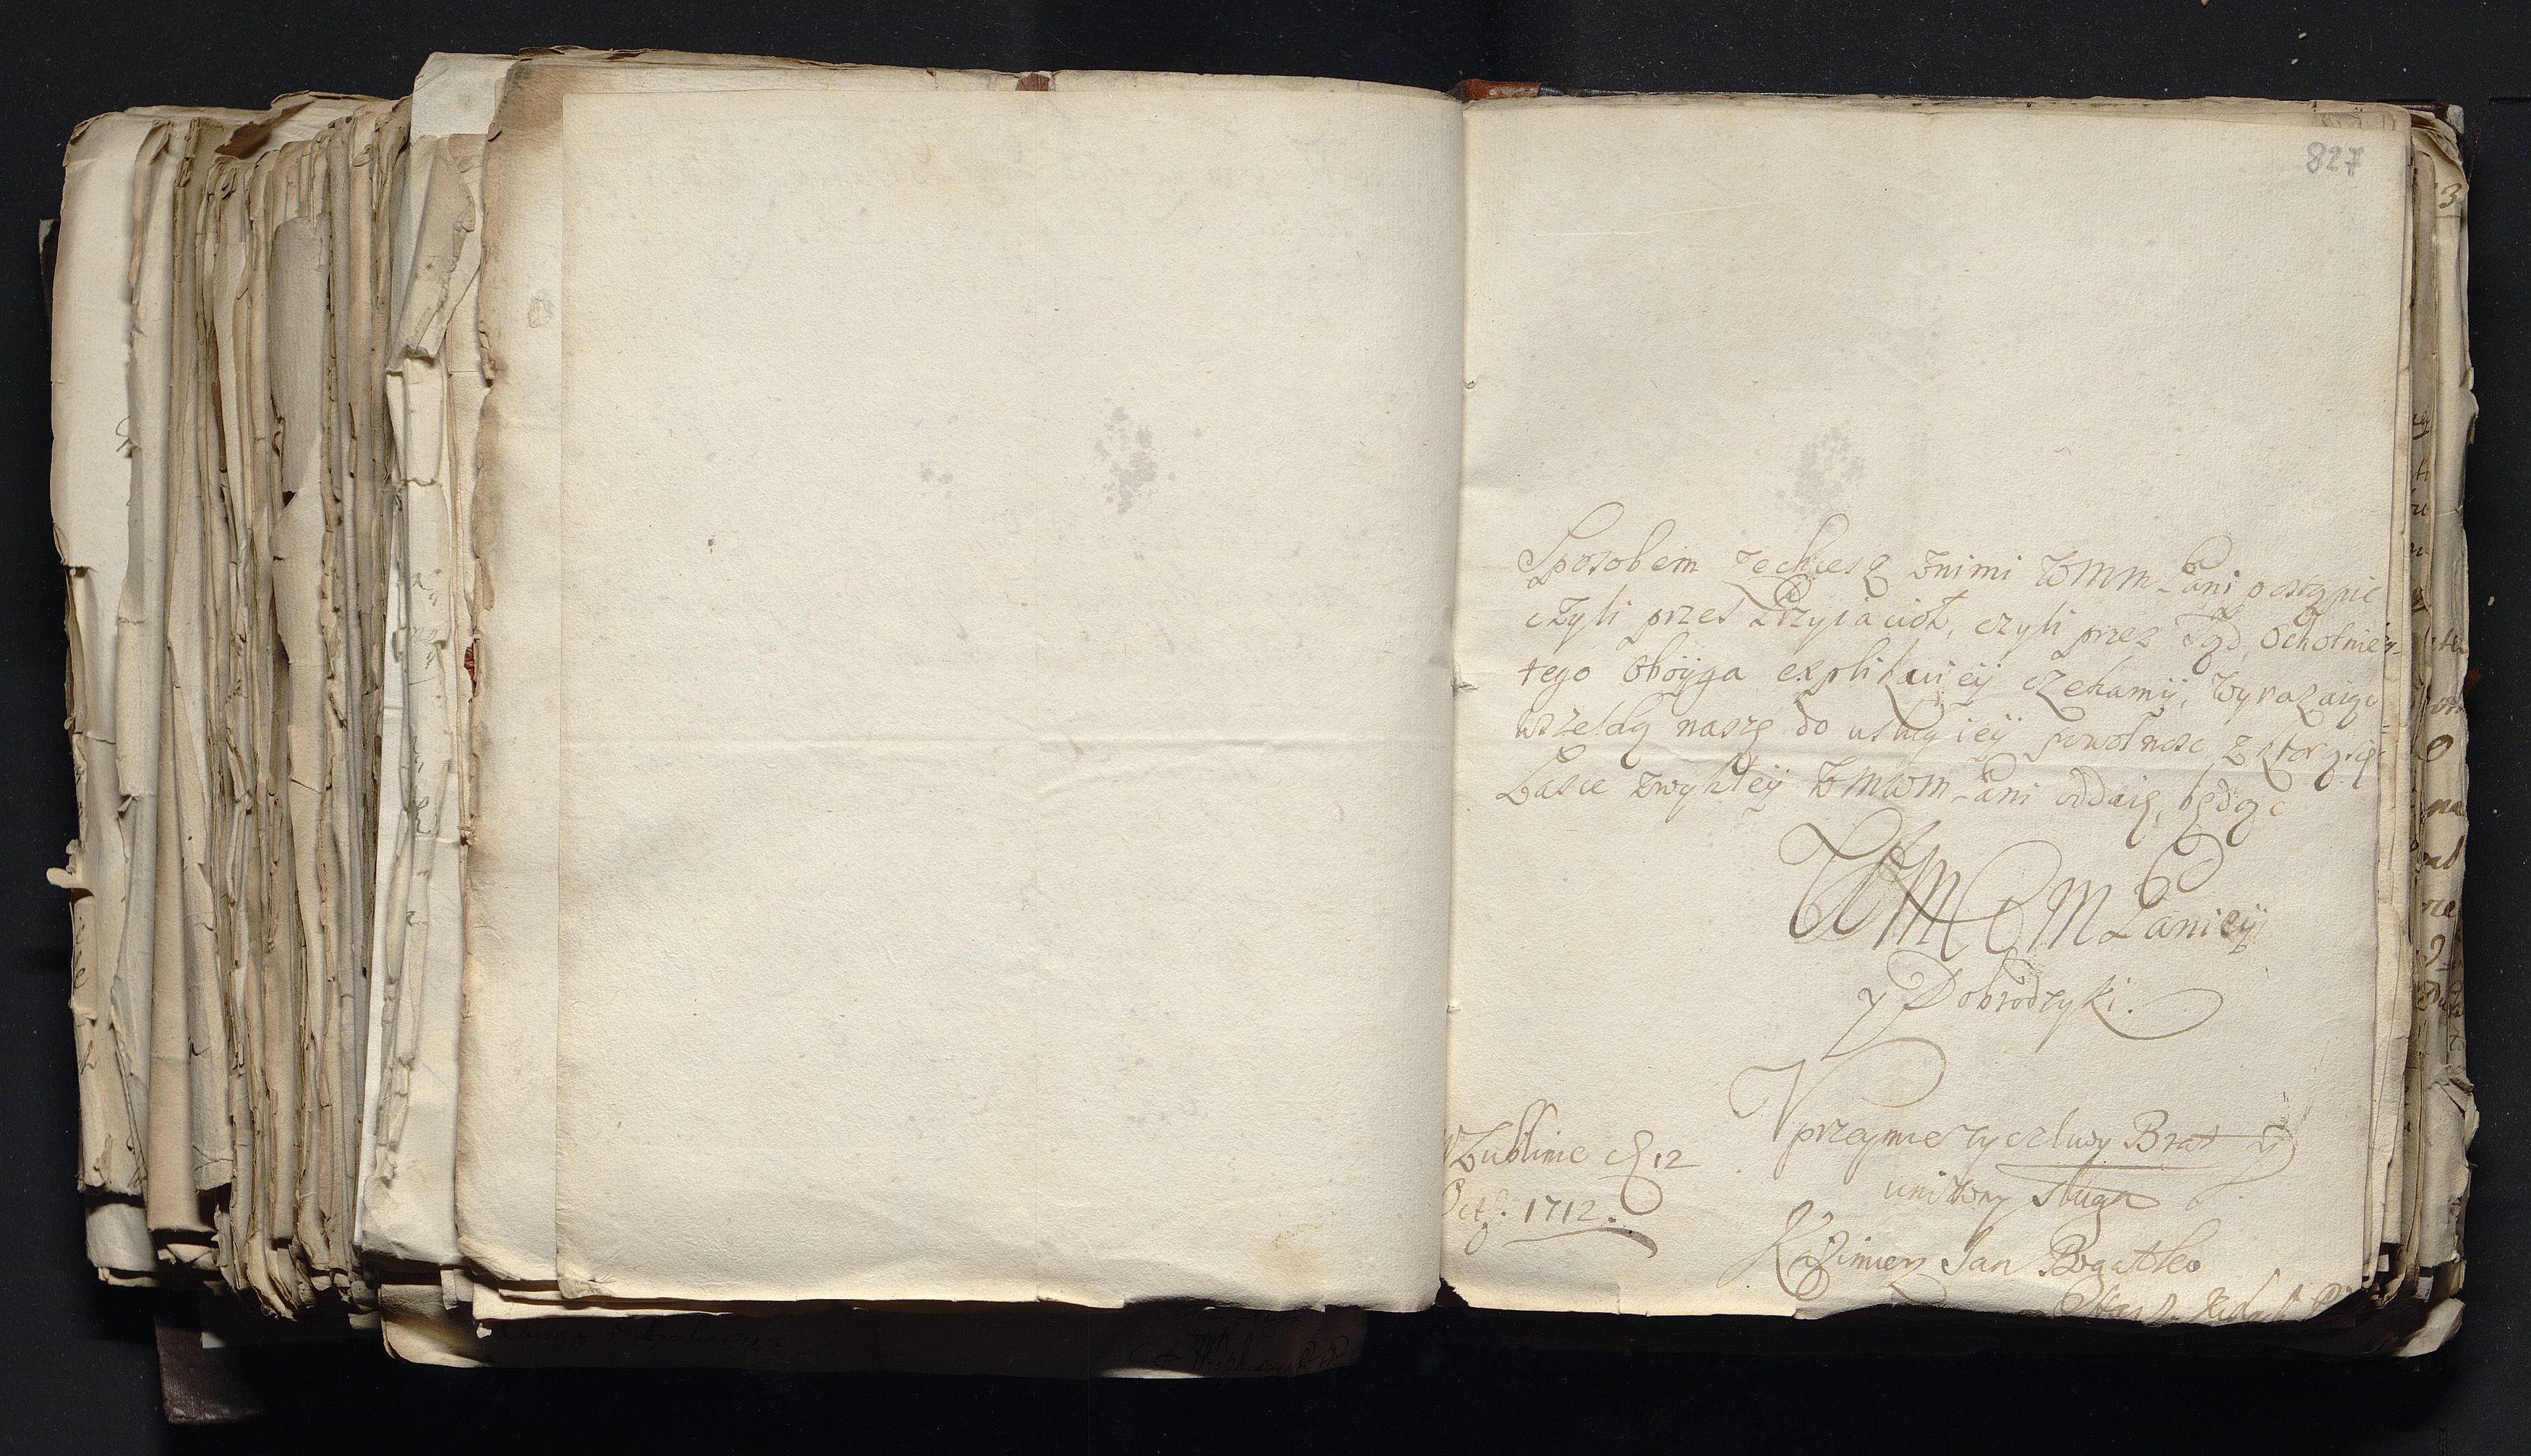 827
Sposobem zechcesz znimi WMM Pani postąpic
czyli przes Przyiacioł, czyli przez Sąd, Ochotniey
tego oboyga explikacieÿ czekamÿ, wyrazaiąc
wszelaką naszę do usług ieÿ powolnosc z ktorą się
Łasce zwykłeÿ WMWM Pani oddaię, będąc
WMWM Panieÿ
y Dobrodzyki.
Vprzeymie zyczliwy Brat y
unizony Sługa
Kazimierz Jan Bogatko
W Lublinie d 12
Octb. 1712.